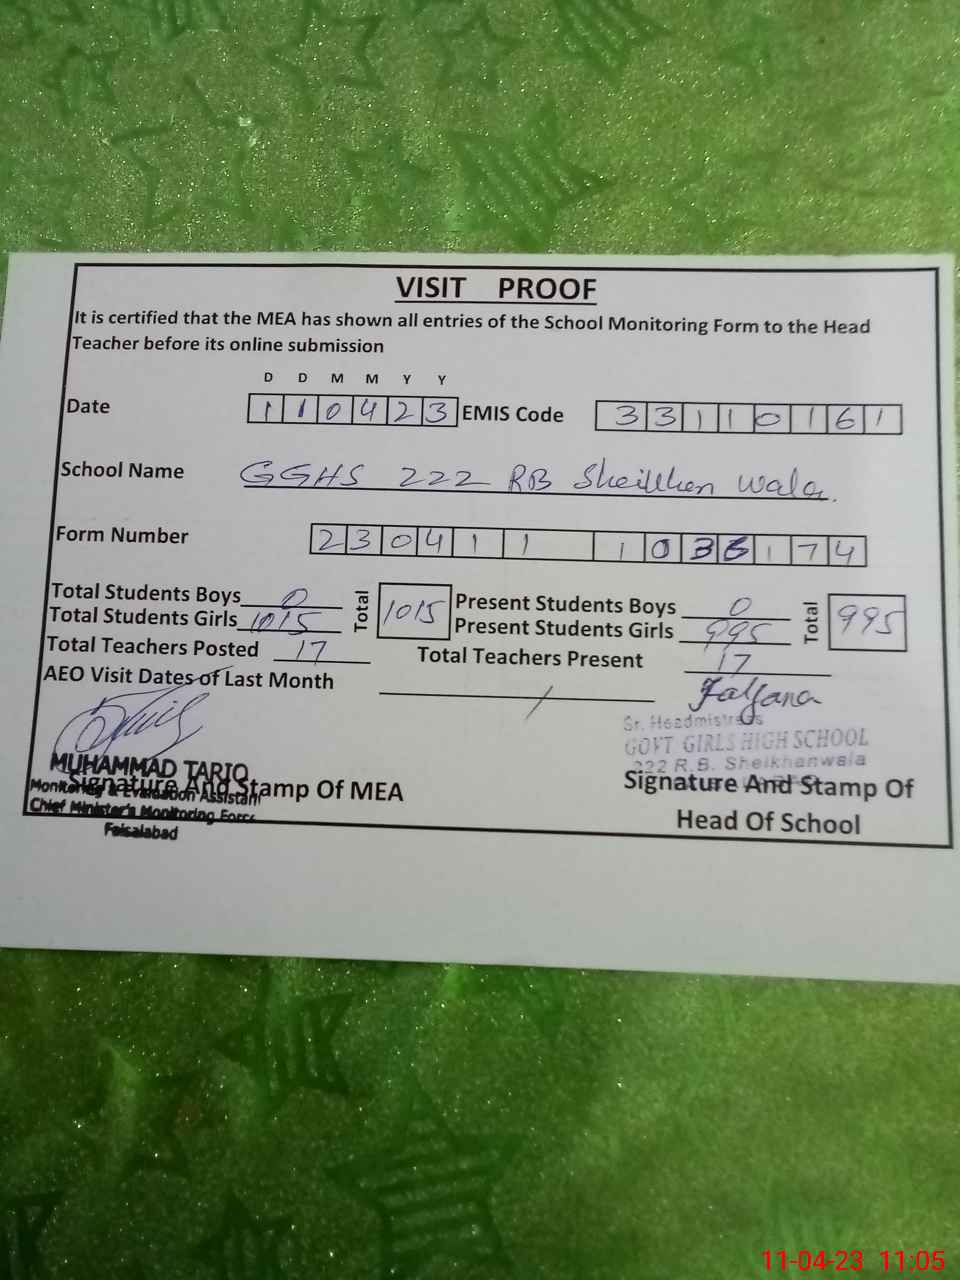 VISIT PROOF
It is certified that the MEA has shown all entries of the School Monitoring Form to the Head
Teacher before its online submission
D D M M Y Y
Date 1 1 0 4 2 3 EMIS Code 3 3 1 1 0 1 6 1
School Name GGHS 222 RB Sheikhen Wala.
Form Number 2 3 0 4 1 1 1 0 3 6 1 7 4
Total Students Boys 0 Total 1015 Present Students Boys 0 Total 995
Total Students Girls 1015 Present Students Girls 995
Total Teachers Posted 17 Total Teachers Present 17
AEO Visit Dates of Last Month /
Sr. Headmistress
GOVT GIRLS HIGH SCHOOL
222 R.B. Sheikhanwala
MUHAMMAD TARIQ
Signature And Stamp Of MEA Signature And Stamp Of
Monitoring & Evaluation Assistant
Chief Minister's Monitoring Force
Head Of School
Faisalabad
11-04-23 11:05